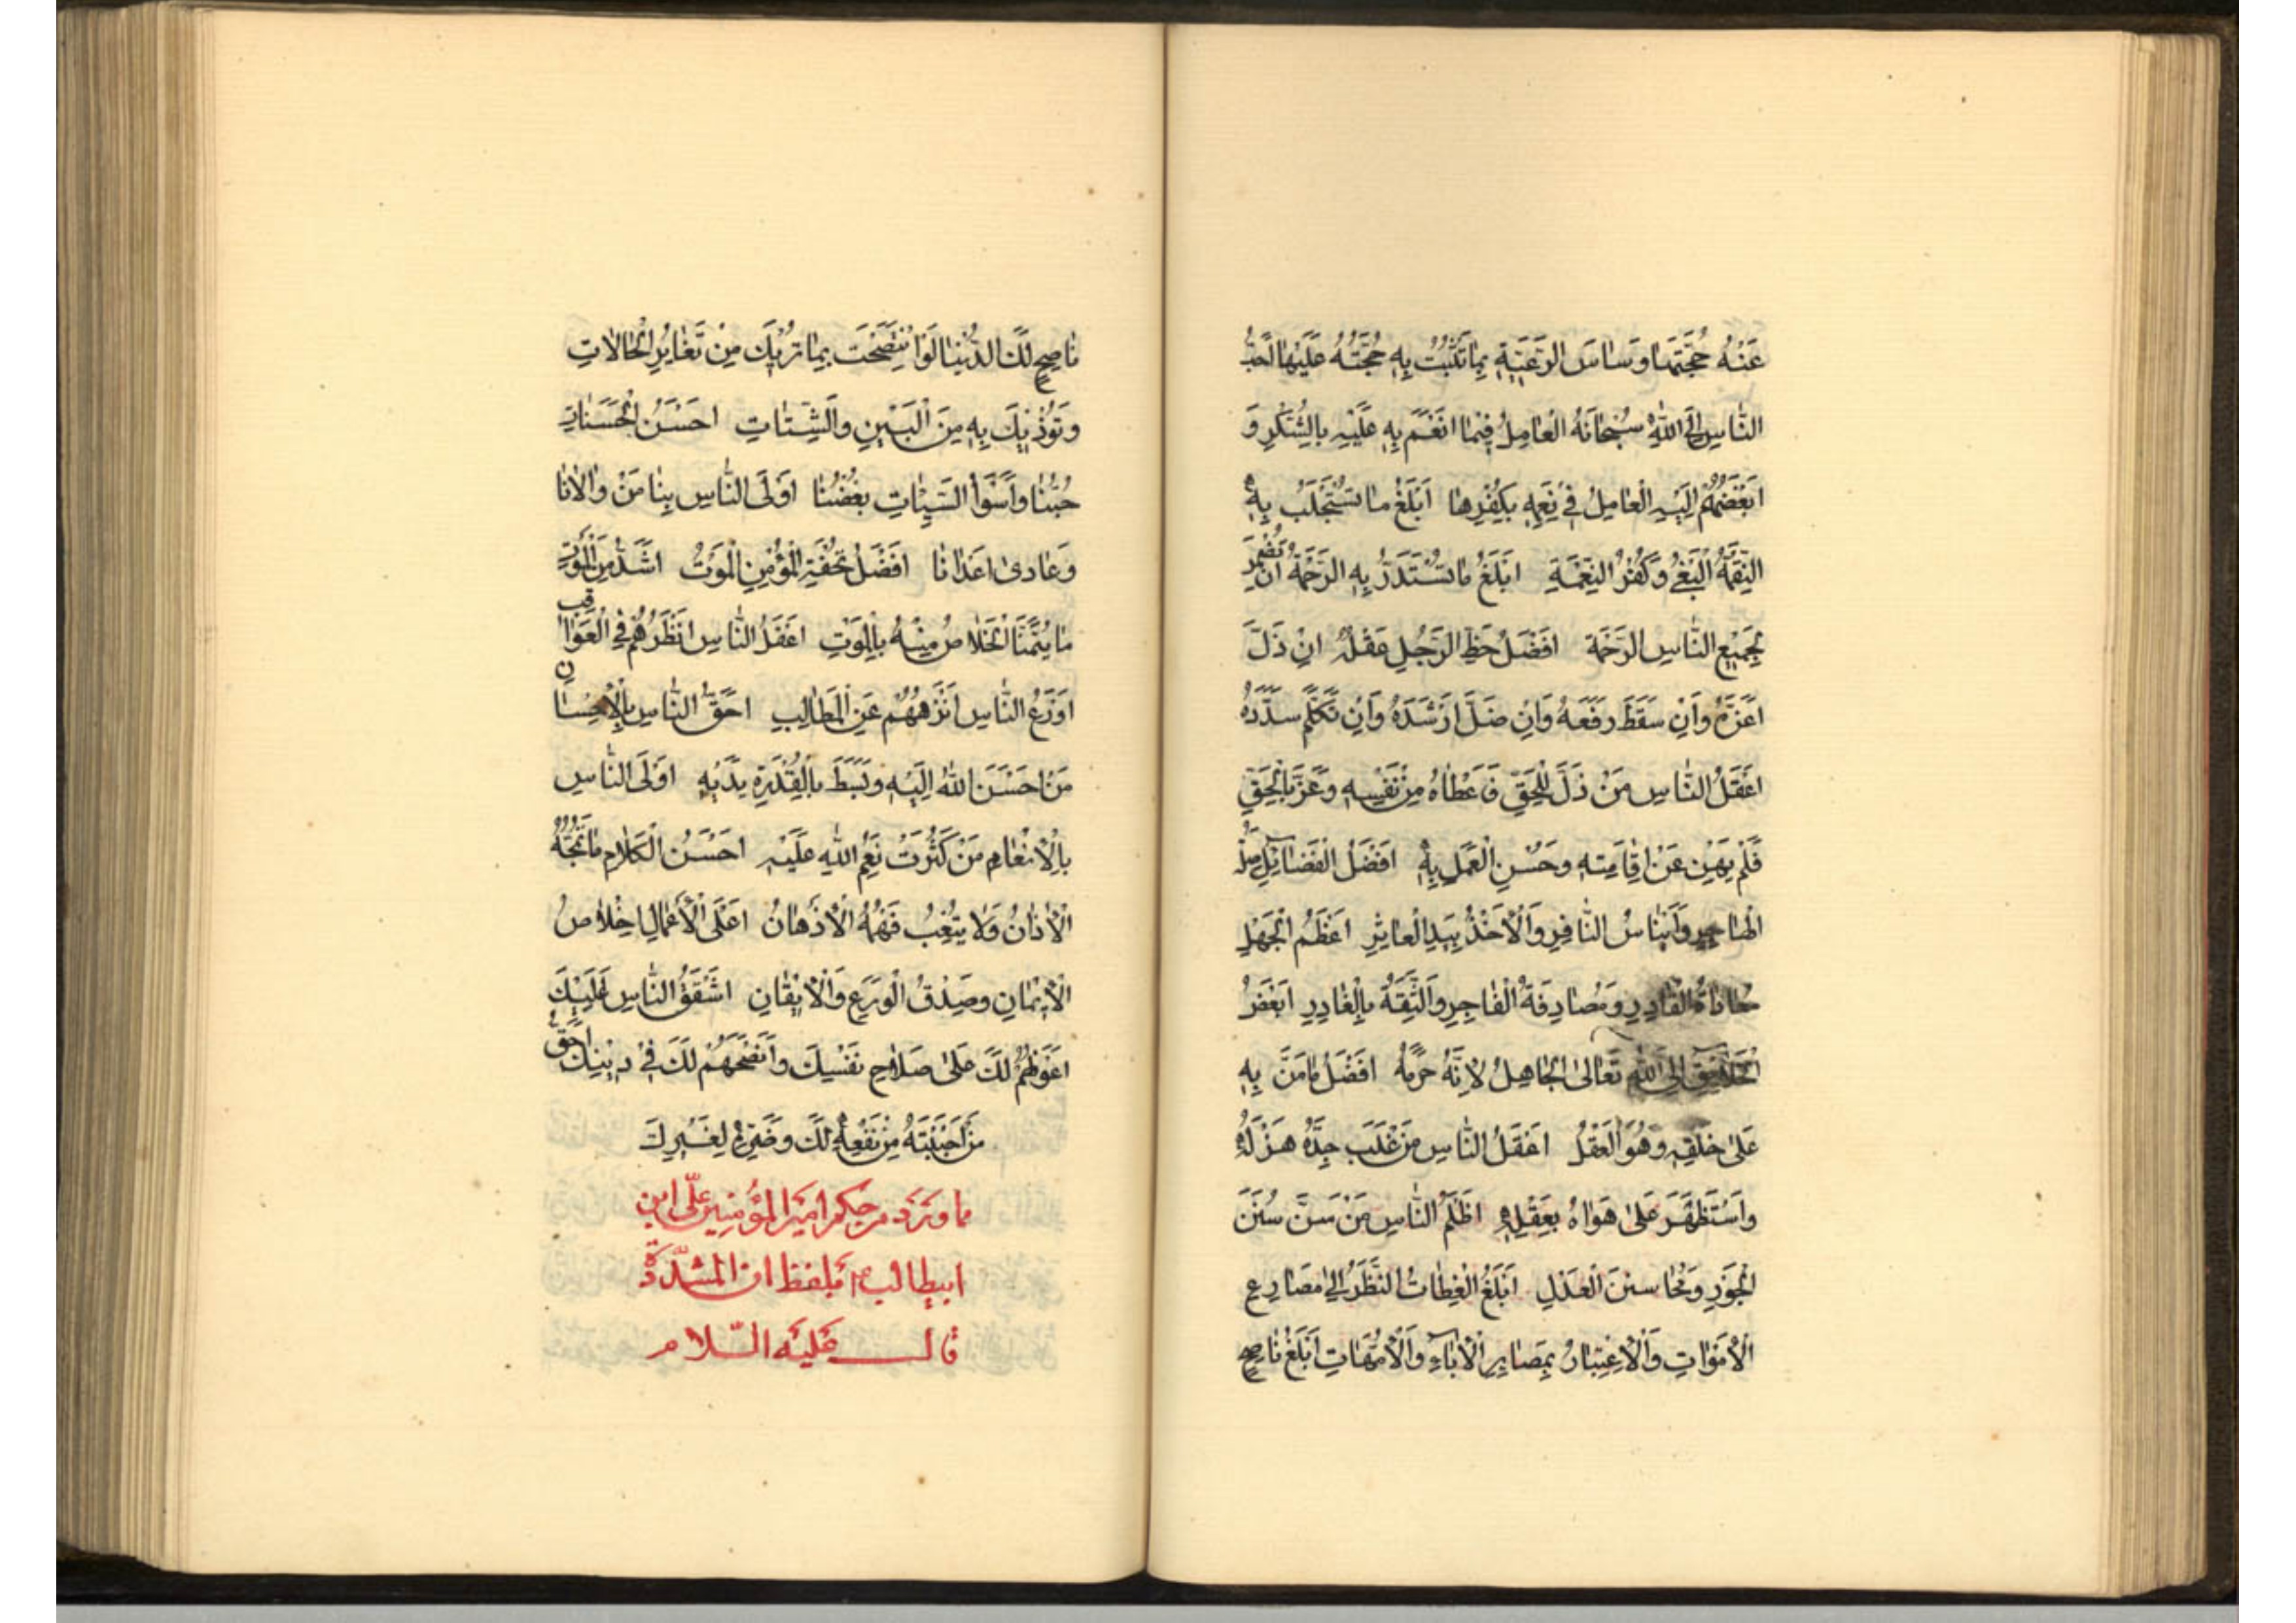 عَنْهُ حُجَّتَهَا وَسَاسَ الرَّعِيَّةِ بِمَا تَثْبُتُ بِهِ حُجَّتُهُ عَلَيْهَا اَحَبُّ
النَّاسِ اِلَى اللهِ سُبْحَانَهُ الْعَامِلُ فِيمَا اَنْعَمَ بِهِ عَلَيْهِ بِالشُّكْرِ وَ
اَبْغَضُهُمْ اِلَيْهِ الْعَامِلُ فِي نِعَمِهِ بِكُفْرِهَا اَبْلَغُ مَا تُسْتَجْلَبُ بِهِ
النِّقْمَةُ الْبَغْيُ وَكُفْرُ النِّعْمَةِ اَبْلَغُ مَا تُسْتَدَرُّ بِهِ الرَّحْمَةُ اَنْ تُضْمِرَ
لِجَمِيعِ النَّاسِ الرَّحْمَةَ اَفْضَلُ حَظِّ الرَّجُلِ عَقْلُهُ اِنْ ذَلَّ
اَعَزَّهُ وَاِنْ سَقَطَ رَفَعَهُ وَاِنْ ضَلَّ اَرْشَدَهُ وَاِنْ تَكَلَّمَ سَدَّدَهُ
اَعْقَلُ النَّاسِ مَنْ ذَلَّ لِلْحَقِّ فَاَعْطَاهُ مِنْ نَفْسِهِ وَعَزَّ بِالْحَقِّ
فَلَمْ يَهِنْ عَنْ اِقَامَتِهِ وَحُسْنِ الْعَمَلِ بِهِ اَفْضَلُ الْفَضَائِلِ صِلَةُ
الْهَاجِرِ وَاِينَاسُ النَّافِرِ وَالْاَخْذُ بِيَدِ الْعَاثِرِ اَعْظَمُ الْجَهْلِ
مُعَادَاةُ الْقَادِرِ وَمُصَادَقَةُ الْفَاجِرِ وَالثِّقَةُ بِالْغَادِرِ اَبْغَضُ
الْخَلَائِقِ اِلَى اللهِ تَعَالَى الْجَاهِلُ لِاَنَّهُ حَرَمَهُ اَفْضَلَ مَا مَنَّ بِهِ
عَلَى خَلْقِهِ وَهُوَ الْعَقْلُ اَعْقَلُ النَّاسِ مَنْ غَلَبَ جِدُّهُ هَزْلَهُ
وَاسْتَظْهَرَ عَلَى هَوَاهُ بِعَقْلِهِ اَظْلَمُ النَّاسِ مَنْ سَنَّ سُنَنَ
الْجَوْرِ وَمَحَا سُنَنَ الْعَدْلِ اَبْلَغُ الْعِظَاتِ النَّظَرُ اِلَى مَصَارِعِ
الْاَمْوَاتِ وَالْاِعْتِبَارُ بِمَصَايِرِ الْاٰبَاءِ وَالْاُمَّهَاتِ اَبْلَغُ نَاصِحٍ
نَاصِحٍ لَكَ الدُّنْيَا لَوِ انْتَصَحْتَ بِمَا تُرِيكَ مِنْ تَغَايُرِ الْحَالَاتِ
وَتُؤْذِنُكَ بِهِ مِنَ الْبَيْنِ وَالشَّتَاتِ اَحْسَنُ الْحَسَنَاتِ
حُبُّنَا وَاَسْوَأُ السَّيِّئَاتِ بُغْضُنَا اَوْلَى النَّاسِ بِنَا مَنْ وَالَانَا
وَعَادَى اَعْدَانَا اَفْضَلُ تُحْفَةِ الْمُؤْمِنِ الْمَوْتُ اَشَدُّ مِنَ الْمَوْتِ
مَا يُتَمَنَّا الْخَلَاصُ مِنْهُ بِالْمَوْتِ اَعْقَلُ النَّاسِ اَنْظَرُهُمْ فِي الْعَوَاقِبِ
اَوْرَعُ النَّاسِ اَنْزَهُهُمْ عَنِ الْمَطَالِبِ اَحَقُّ النَّاسِ بِالْاِحْسَانِ
مَنْ اَحْسَنَ اللهُ اِلَيْهِ وَبَسَطَ بِالْقُدْرَةِ يَدَيْهِ اَوْلَى النَّاسِ
بِالْاِنْعَامِ مَنْ كَثُرَتْ نِعَمُ اللهِ عَلَيْهِ اَحْسَنُ الْكَلَامِ مَا لَا تَمُجُّهُ
الْاٰذَانُ وَلَا يُتْعِبُ فَهْمُهُ الْاَذْهَانَ اَعْلَى الْاَعْمَالِ اِخْلَاصُ
الْاِيمَانِ وَصِدْقُ الْوَرَعِ وَالْاِيقَانِ اَشْفَقُ النَّاسِ عَلَيْكَ
اَعْوَنُهُمْ لَكَ عَلَى صَلَاحِ نَفْسِكَ وَاَنْصَحُهُمْ لَكَ فِي دِينِكَ اَحَقُّ
مَنْ اَحْبَبْتَهُ مَنْ نَفْعُهُ لَكَ وَضَرُّهُ لِغَيْرِكَ
مَا وَرَدَ مِنْ حِكَمِ اَمِيرِ الْمُؤْمِنِينَ عَلِيِّ ابْنِ
ابيطالب ع بلفظ ان المشدّدة
قال عَلَيْهِ السَّلَام